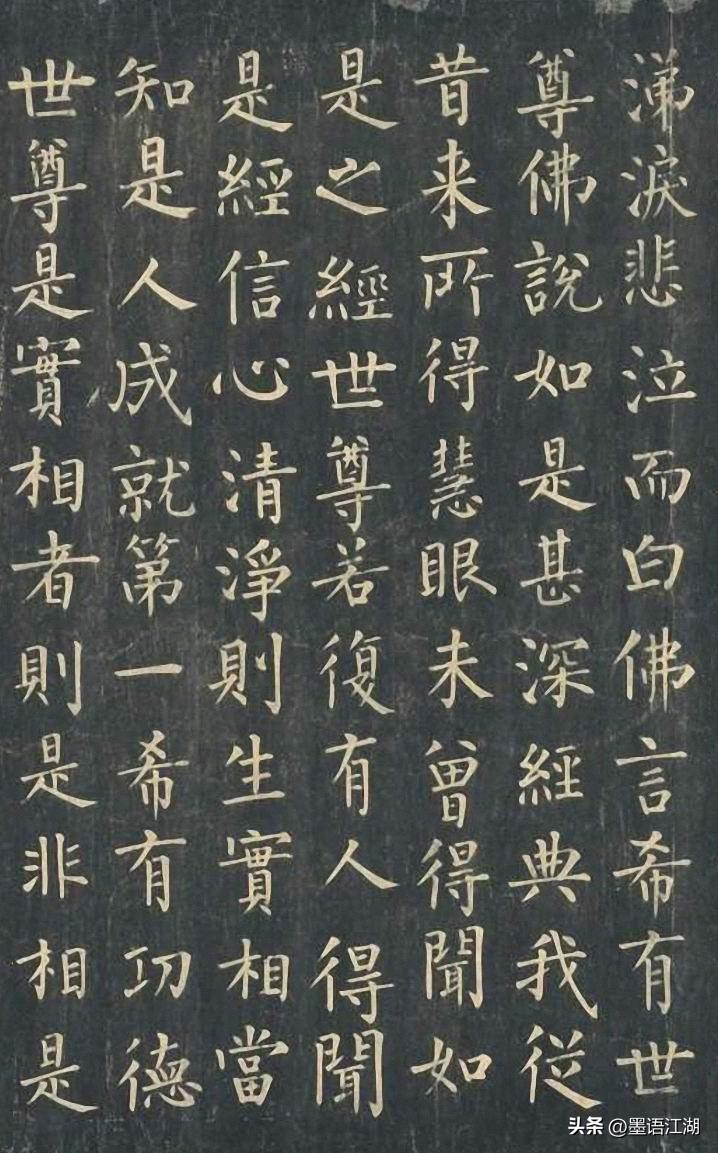 涕淚悲泣而白佛言希有世
尊佛說如是甚深經典我從
昔来所得慧眼未曾得聞如
是之經世尊若復有人得聞
是經信心清淨則生實相當
知是人成就第一希有功德
世尊是實相者則是非相是
头条 @墨语江湖